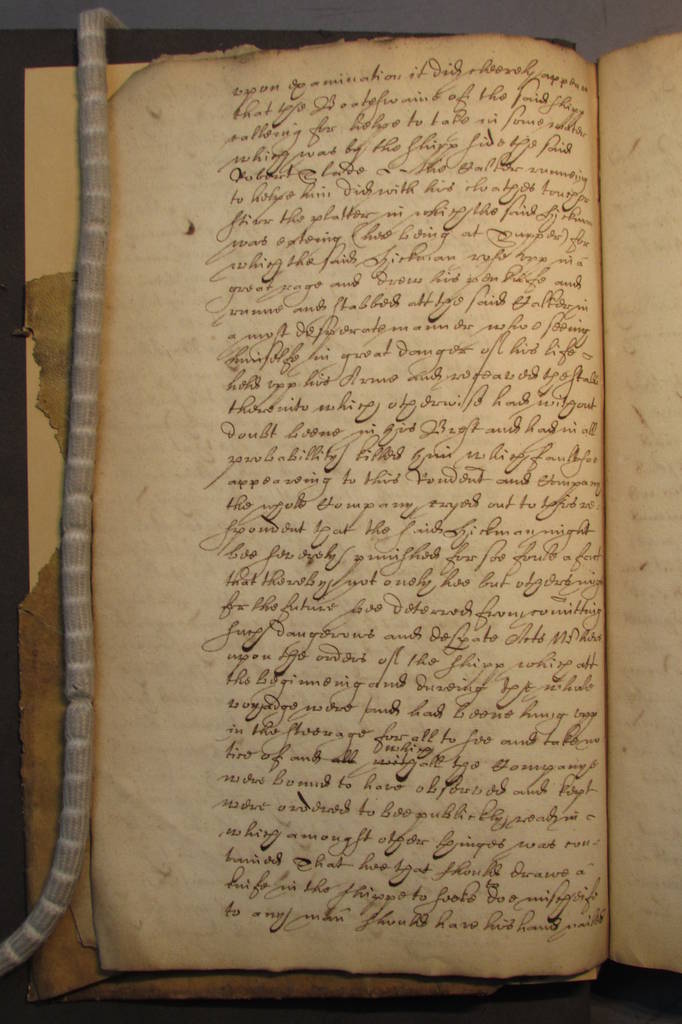 upon examination it did cleerely appeare
that the Boateswaine of the said shipp
calling for helpe to take in some water
which was by the shipp side the said
Robert Slade the Salter runneing
to helpe him did with his cloathes touch or
stirr the platter in which the said Hickman
was eateing (hee being at Supper) for
which the said Hickman rose upp in a
great rage and drew his penknife and
runne and stabbed att the said Salter in
a most desperate manner who seeing
himselfe in great danger of his life
held upp his Arme and received the stabb
thereinto which otherwise had without
doubt beene in his Brest and had in all
probabillity killed him which fault soe
appeareing to this Rondent and Company
the whole Company cryed out to this re-
spondent that the said Hickman might
bee severely punished for soe foule a fact
that thereby not onely hee but others might
for the future bee deterred from comitting
such dangerous and desperate Acts Whereupon
upon the orders of the shipp which att
the beginneing and dureing the whole
voyadge were and had beene hung upp
in the steerage for all to see and take no-
tice of and all which withall the Companye
were bound to have observed and kept
were ordered to bee publickly read in
which amongst other thinges was con-
tained That hee that should drawe a
knife in the shippe to seeke to doe mischeife
to any man should have his hand nailed